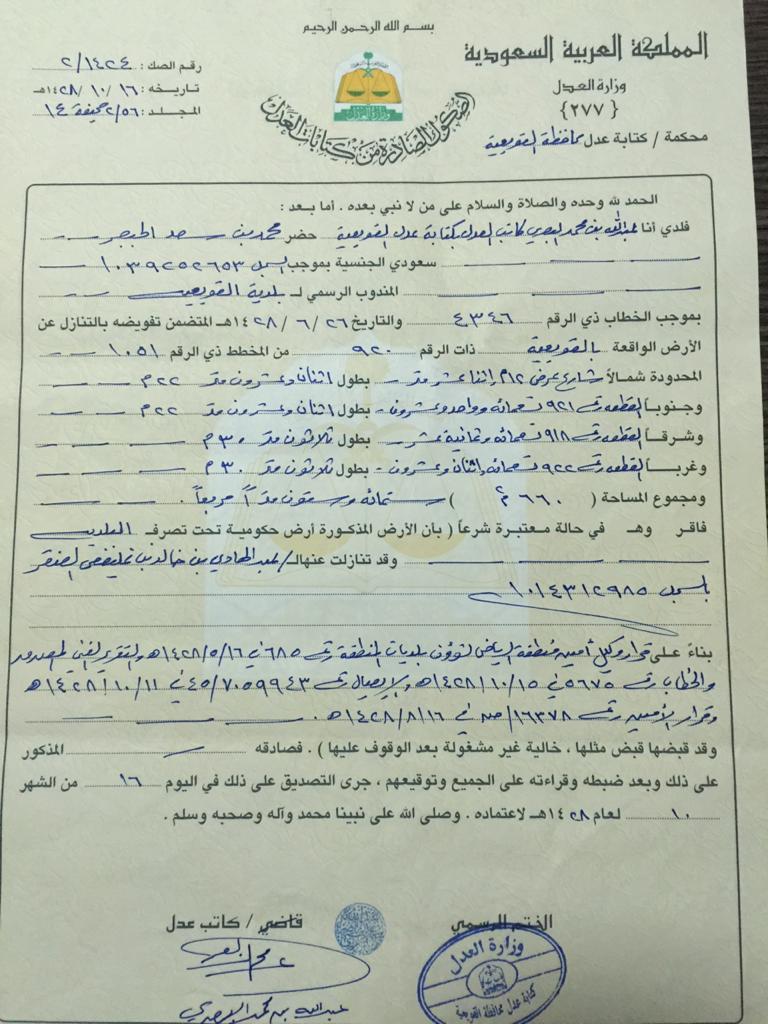 بسم الله الرحمن الرحيم
المملكة العربية السعودية
وزارة العدل
{٢٧٧}
محكمة / كتابة عدل محافظة القويعية
الصكوك الصادرة من كتابات العدل
رقم الصك : ٢/١٤٢٤
تاريخه : ١٦ / ١٠ / ١٤٢٨هـ
المجلد : ٢/٥٦ صحيفة ١٤
الحمد لله وحده والصلاة والسلام على من لا نبي بعده . أما بعد :
فلدي أنا عبدالله بن محمد كاتب العدل بكتابة عدل القويعية حضر محمد بن سعد
سعودي الجنسية بموجب السجل ١٠٣٩٢٥٢٦٥٣
المندوب الرسمي لـ بلدية القويعية
بموجب الخطاب ذي الرقم ٤٣٤٦ والتاريخ ٢٦ / ٦ / ١٤٢٨هـ المتضمن تفويضه بالتنازل عن
الأرض الواقعة بالقويعية ذات الرقم ٩٢٠ من المخطط ذي الرقم ١٠٥١
المحدودة شمالاً شارع عرض ١٢م اثنا عشر متر بطول اثنان وعشرون متر ٢٢م
وجنوباً القطعة رقم ٩٢١ تسعمائة وواحد وعشرون بطول اثنان وعشرون متر ٢٢م
وشرقاً القطعة رقم ٩١٨ تسعمائة وثمانية عشر بطول ثلاثون متر ٣٠م
وغرباً القطعة رقم ٩٢٢ تسعمائة واثنان وعشرون بطول ثلاثون متر ٣٠م
ومجموع المساحة ( ٦٦٠ م٢ ) ستمائة وستون متراً مربعاً .
فأقر وهـ في حالة معتبرة شرعاً ( بأن الأرض المذكورة أرض حكومية تحت تصرف البلديه
وقد تنازلت عنها لـ/ عبدالهادي بن خالد بن
بالسجل ١٠١٤٣١٢٩٨٥
بناءً على قرار وكيل أمين منطقة الرياض لشؤون بلديات المنطقة رقم ٦٨٥ في ١٤٢٨/٥/١٦هـ والتقرير الفني
والخطاب رقم ٥٦٧٥ في ١٤٢٨/١٠/١٥هـ والإيصال رقم ٤٥/٧٠٥٩٩٤٣ في ١٤٢٨/١٠/١١هـ
وقرار الأمين رقم ١٦٣٧٨/ص في ١٤٢٨/٨/١٦هـ .
وقد قبضها قبض مثلها ، خالية غير مشغولة بعد الوقوف عليها ) . فصادقه المذكور
على ذلك وبعد ضبطه وقراءته على الجميع وتوقيعهم ، جرى التصديق على ذلك في اليوم ١٦ من الشهر
١٠ لعام ١٤٢٨هـ لاعتماده . وصلى الله على نبينا محمد وآله وصحبه وسلم .
الختم الرسمي
قاضي / كاتب عدل
وزارة العدل
كتابة عدل محافظة القويعية
عبدالله بن محمد